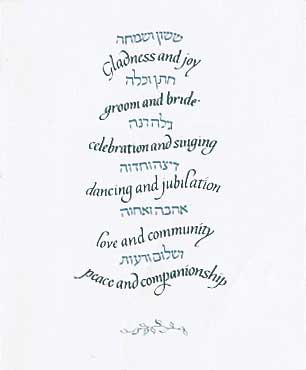 ששון ושמחה
Gladness and joy
חתן וכלה
groom and bride.
גילה רנה
celebration and singing
דיצה וחדוה
dancing and jubilation
אהבה ואחוה
love and community
ושלום ורעות
peace and companionship